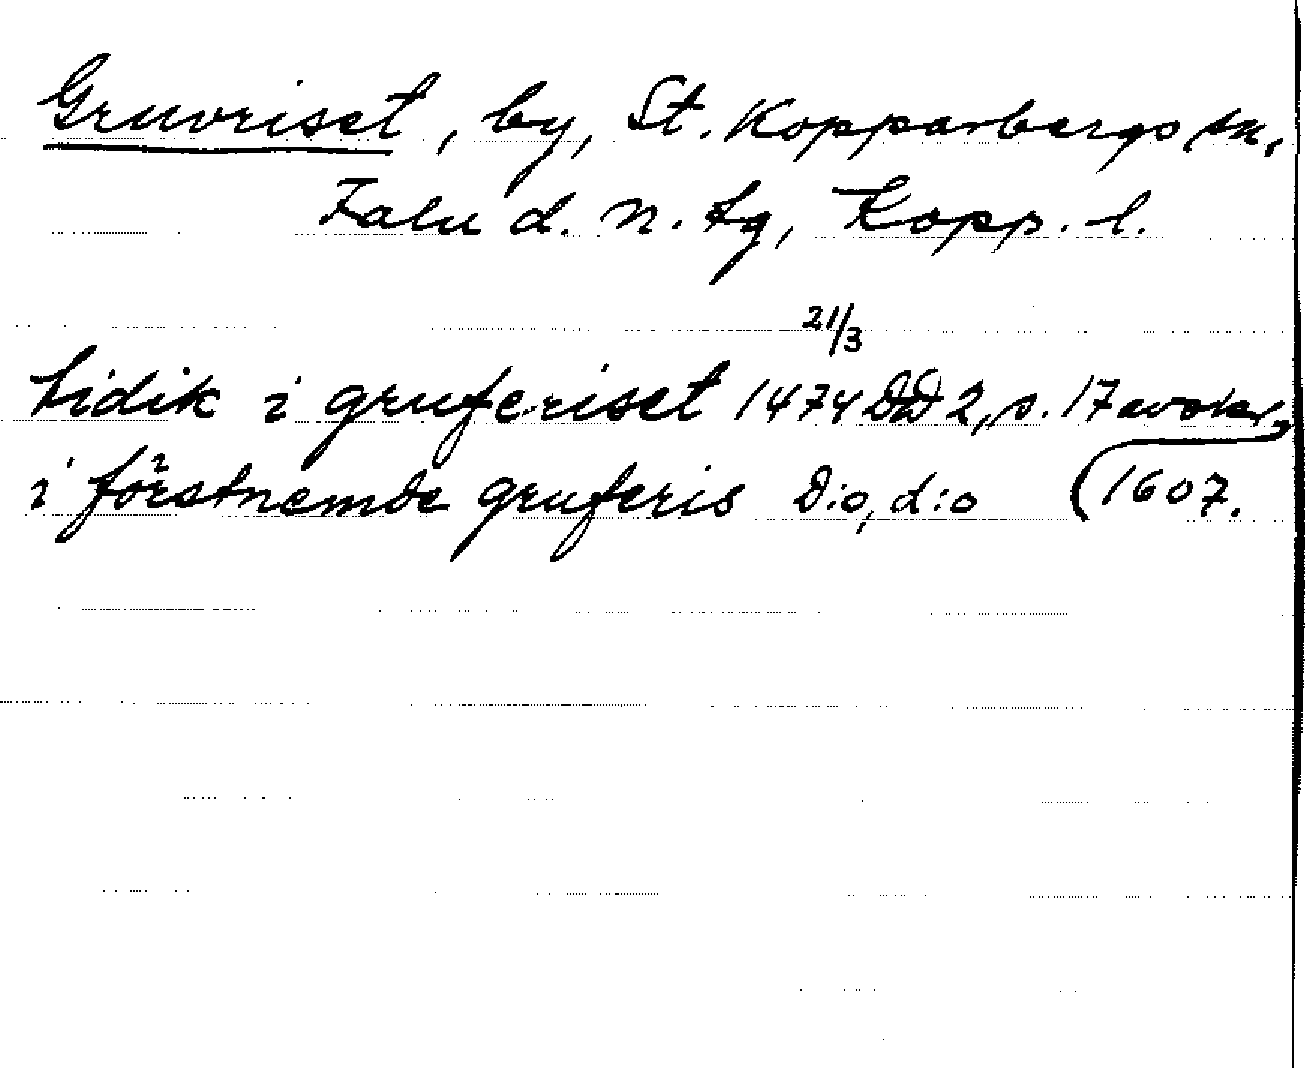 Gruvriset, by, St. Kopparbergs sn,
Falu d. n. tg, Kopp. l.
21/3
tidik i gruferiset 1474 DD 2, s. 17 avskr,
i förstnemde gruferis D:o, d:o (1607.